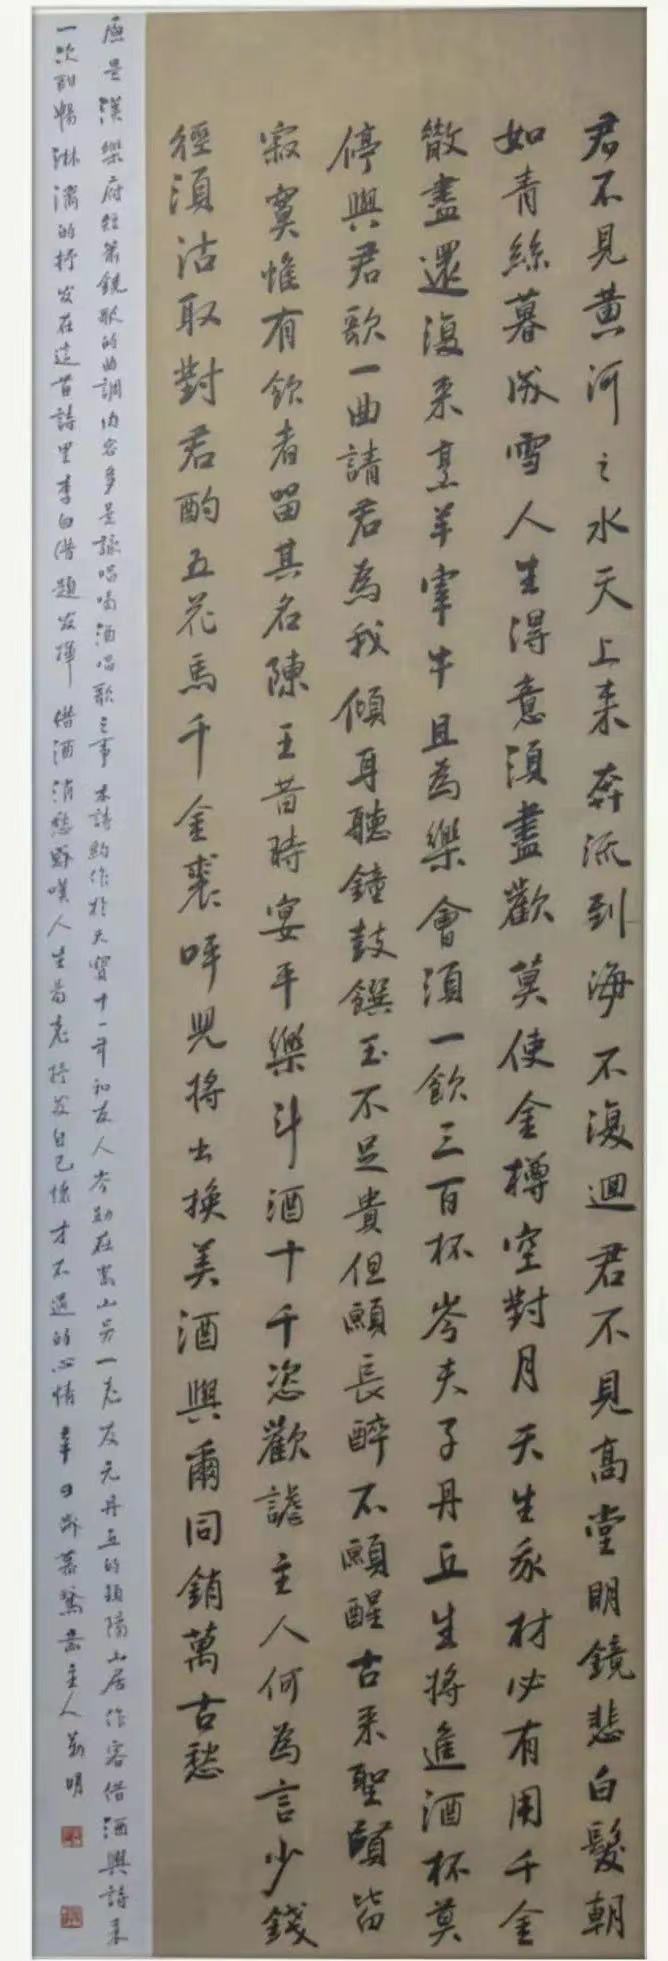 君不見黄河之水天上来奔流到海不復迴君不見高堂明鏡悲白髮朝
如青絲暮成雪人生得意須盡歡莫使金樽空對月天生我材必有用千金
散盡還復来烹羊宰牛且為樂會須一飲三百杯岑夫子丹丘生將進酒杯莫
停與君歌一曲請君為我傾耳聽鐘鼓饌玉不足貴但願長醉不願醒古来聖賢皆
寂寞惟有飲者留其名陳王昔時宴平樂斗酒十千恣歡謔主人何為言少錢
徑須沽取對君酌五花馬千金裘呼兒將出換美酒與爾同銷萬古愁
原是漢樂府短簫鐃歌的曲調内容多是詠唱喝酒唱歌之事本詩約作於天寶十一年和友人岑勋在嵩山另一老友元丹丘的潁陽山居作客借酒興詩来
一次酣暢淋漓的抒发在這首詩里李白借題发揮借酒消愁感嘆人生易老抒发自己懷才不遇的心情辛丑主人明